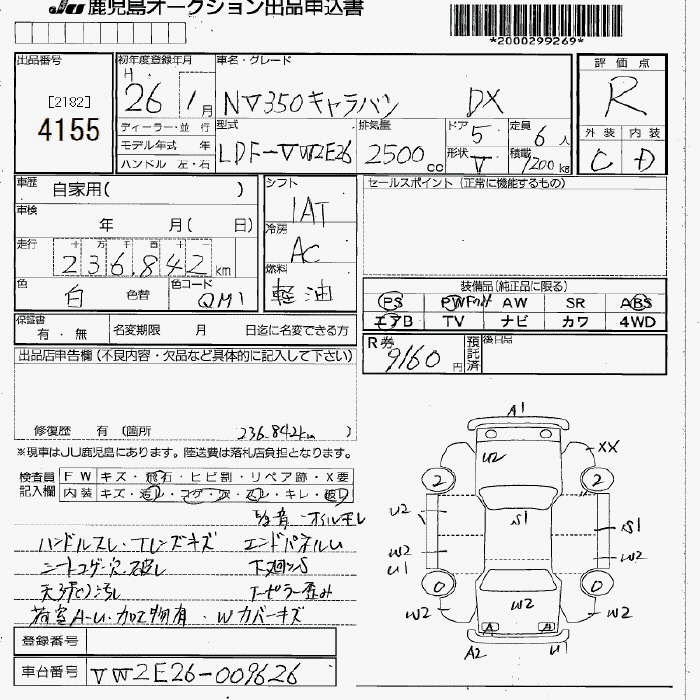 JU 鹿児島オークション出品申込書
*2000299269*
出品番号
[2182]
4155
初年度登録年月
H 26 1月
車名・グレード
NV350キャラバン DX
評価点
R
外装 内装
C D
ディーラー・並行
モデル年式 年
ハンドル 左・右
型式
LDF-VW2E26
排気量
2500cc
ドア 5
形状 V
定員 6人
積載 1200kg
車歴 自家用( )
車検 年 月( 日)
走行 十 万 千 百 十 一
236,842km
色 白 色替
色コード QM1
シフト
IAT
冷房
AC
燃料
軽油
セールスポイント(正常に機能するもの)
装備品(純正品に限る)
PS PW AW SR ABS
エアB TV ナビ カワ 4WD
保証書 有・無
名変期限 月 日迄に名変できる方
R券 9160円
預託済
後日品
出品店申告欄(不良内容・欠品など具体的に記入して下さい)
修復歴 有(箇所 236.842km )
※現車はJU鹿児島にあります。陸送費は落札店負担となります。
検査員記入欄
FW キズ・飛石・ヒビ割・リペア跡・X要
内装 キズ・汚レ・コゲ・穴・スレ・キレ・破レ
異音・オイルモレ
ハンドルスレ・Fレンズキズ エンドパネルU
シートコゲ・穴・破レ 下廻りS
天張り汚レ Fピラー歪み
荷室A-U・加工物有・Wカバーキズ
登録番号
車台番号 VW2E26-009626
A1
XX
U2
2
2
U2
S1
S1
W2
U1
W2
0
0
W2
W2
W2
A
A
A2
U1